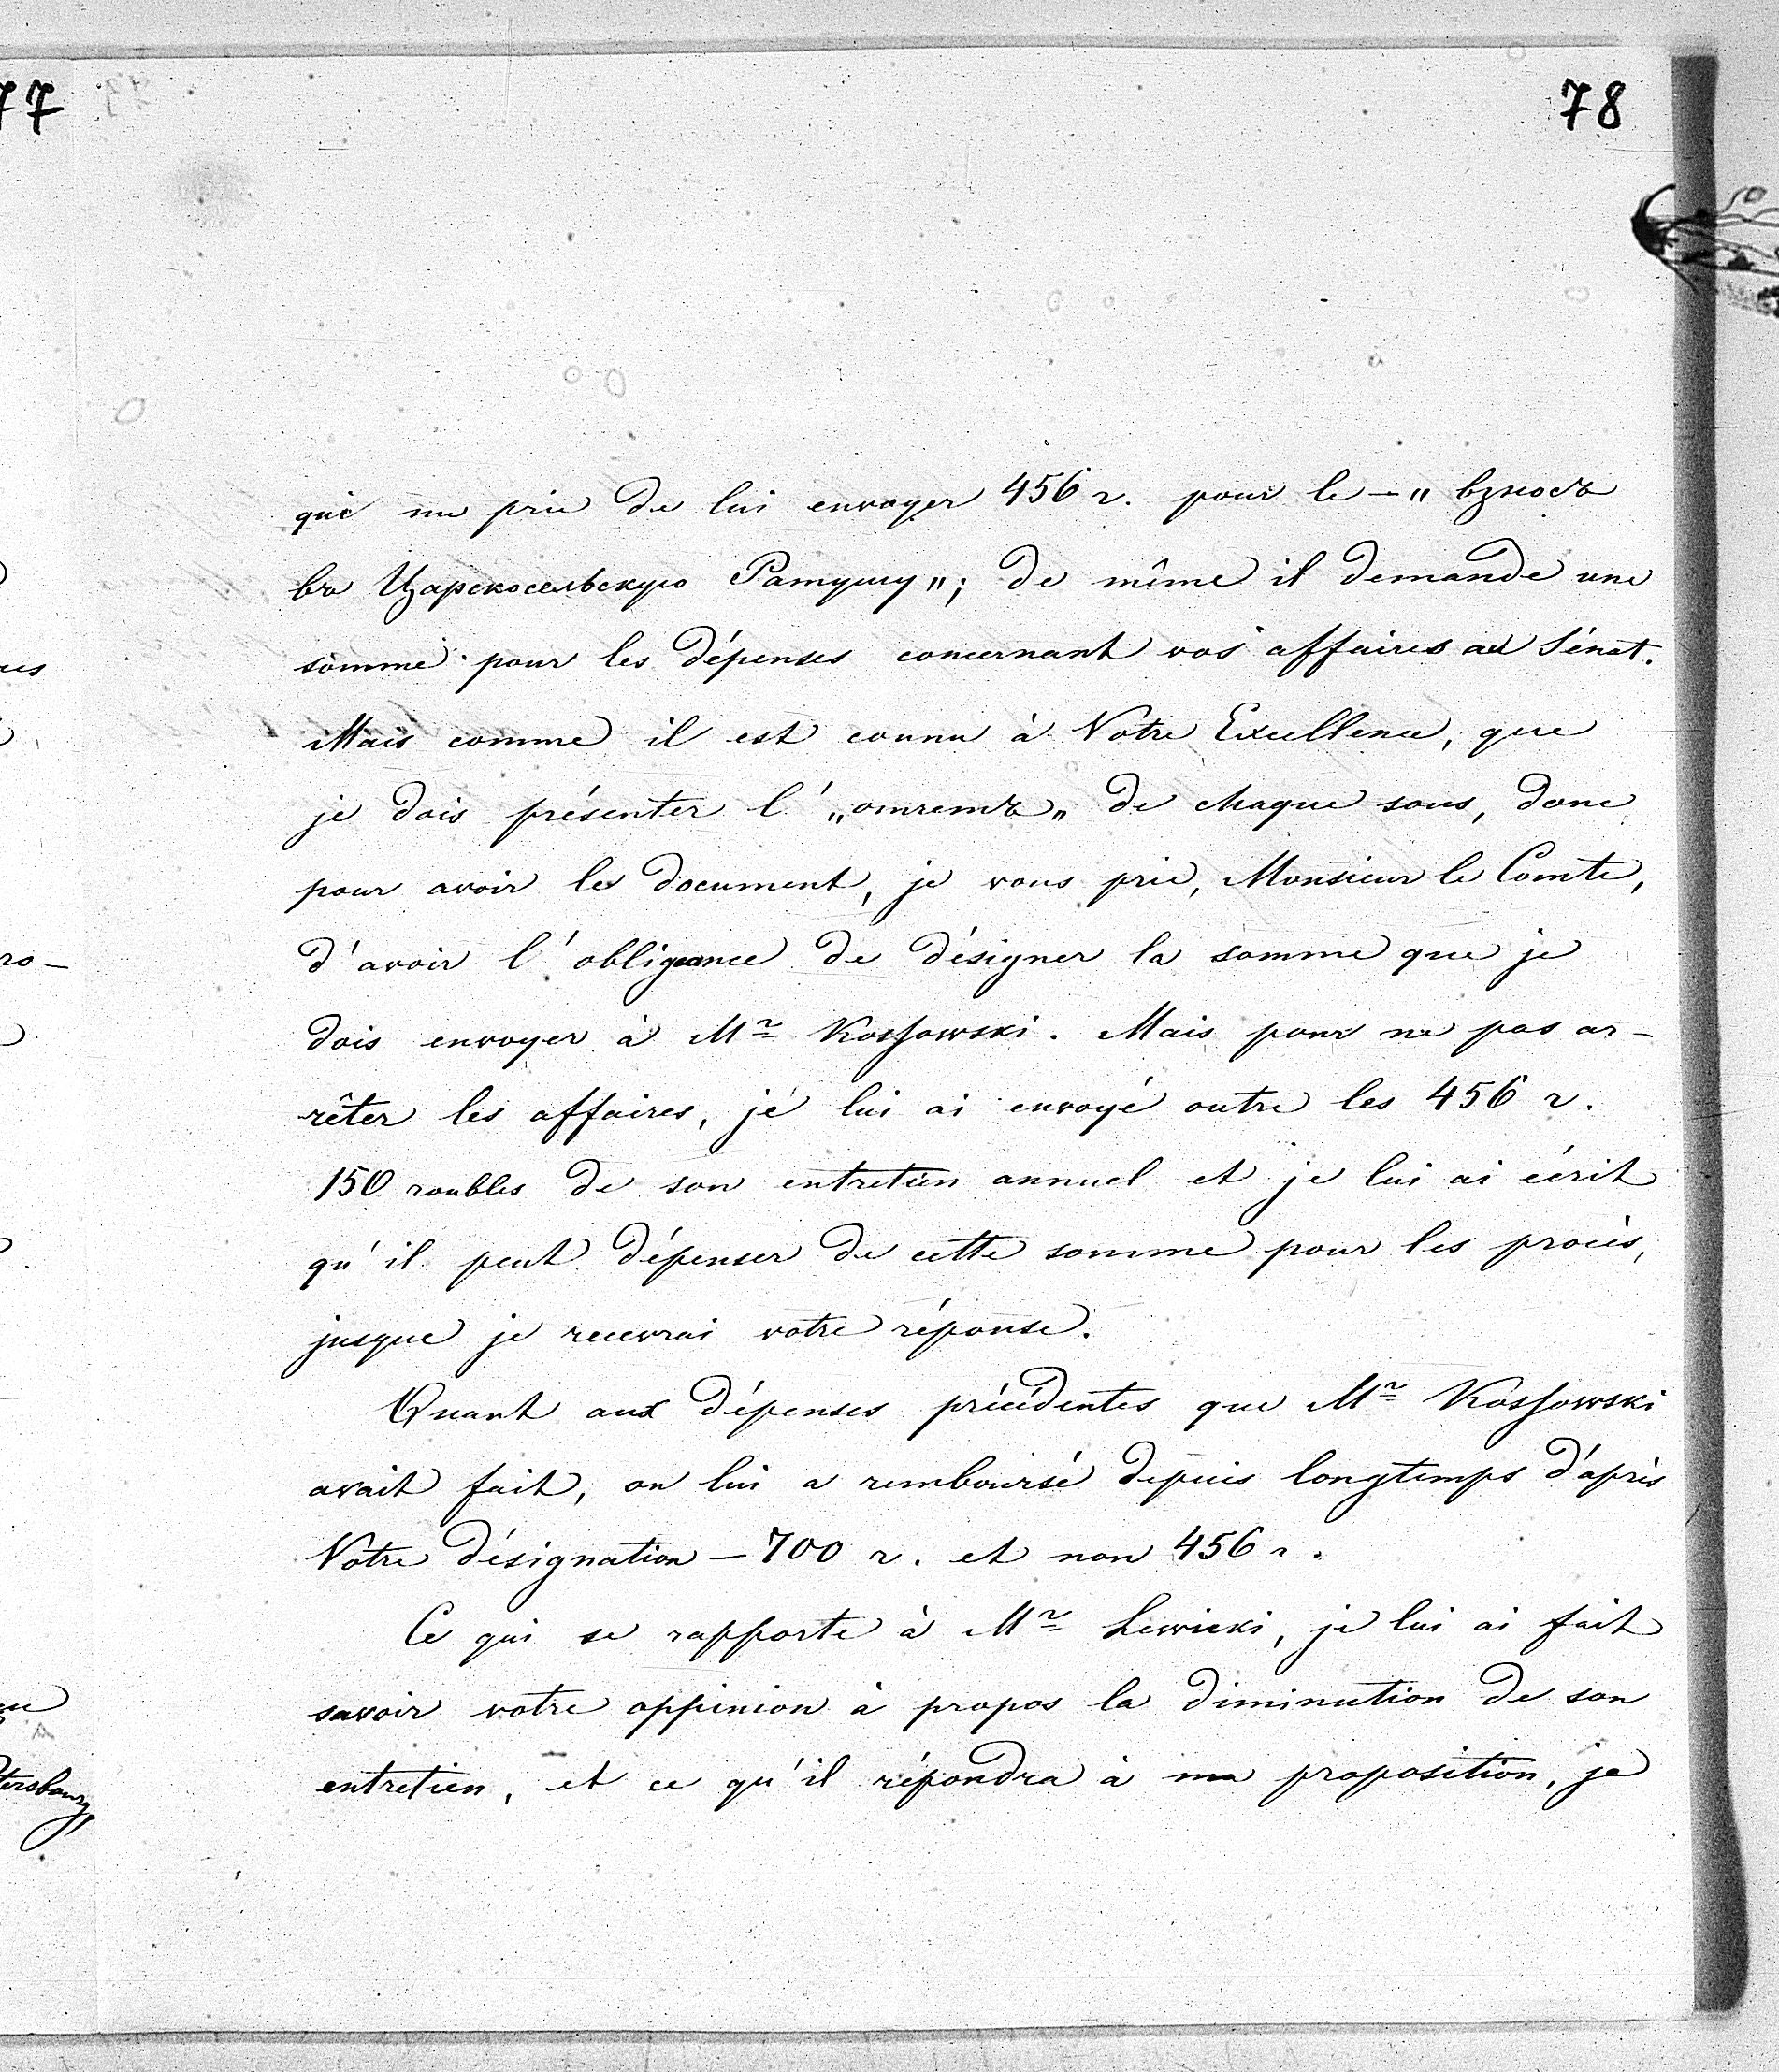 77
78
qui me prie de lui envoyer 456 r. pour le — „ взносъ
въ Царскосельскую Ратушу „; de même il demande une
somme pour les dépenses concernant vos affaires au Sénat.
Mais comme il est connu à Votre Excellence, que
je dois présenter l' „отчетъ„ de chaque sous, donc
pour avoir les document, je vous prie, Monsieur le Comte,
d'avoir l'obligeance de désigner la somme que je
dois envoyer à Mr Kossowski. Mais pour ne pas ar-
rêter les affaires, je lui ai envoyé outre les 456 r.
150 roubles de son entretien annuel et je lui ai écrit
qu'il peut dépenser de cette somme pour les procès,
jusque je recevrai votre réponse.
Quant aux dépenses précédentes que Mr Kossowski
avait fait, on lui a remboursé depuis longtemps d'après
Votre désignation — 700 r. et non 456 r.
Ce qui se rapporte à Mr Lewicki, je lui ai fait
savoir votre oppinion à propos la diminution de son
entretien, et ce qu'il répondra à ma proposition, je